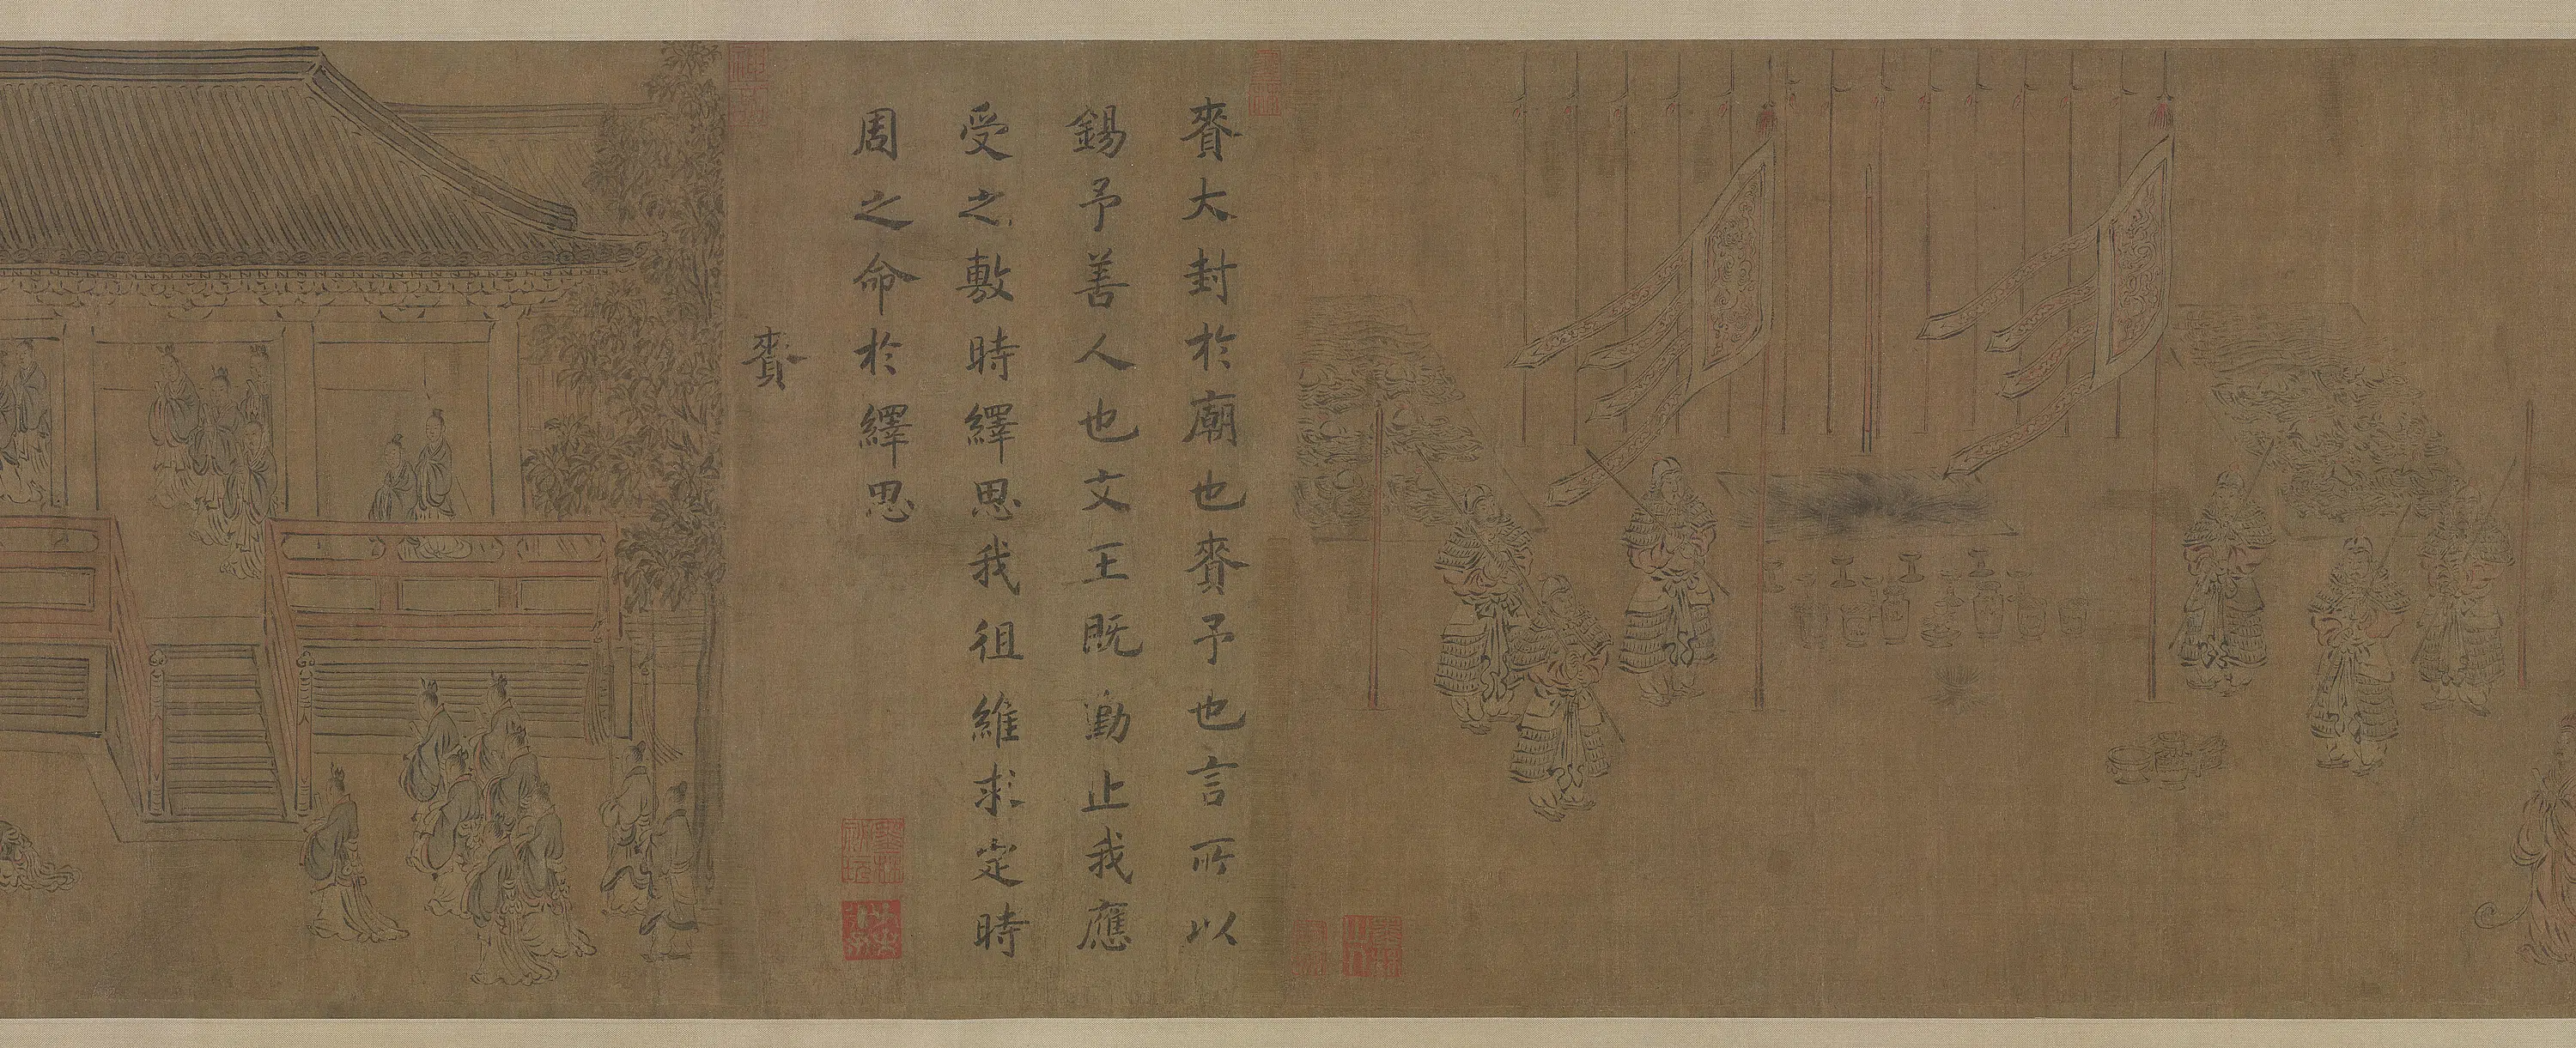 賚大封於廟也賚予也言所以
錫予善人也文王既勤止我應
受之敷時繹思我徂維求定時
周之命於繹思
賚